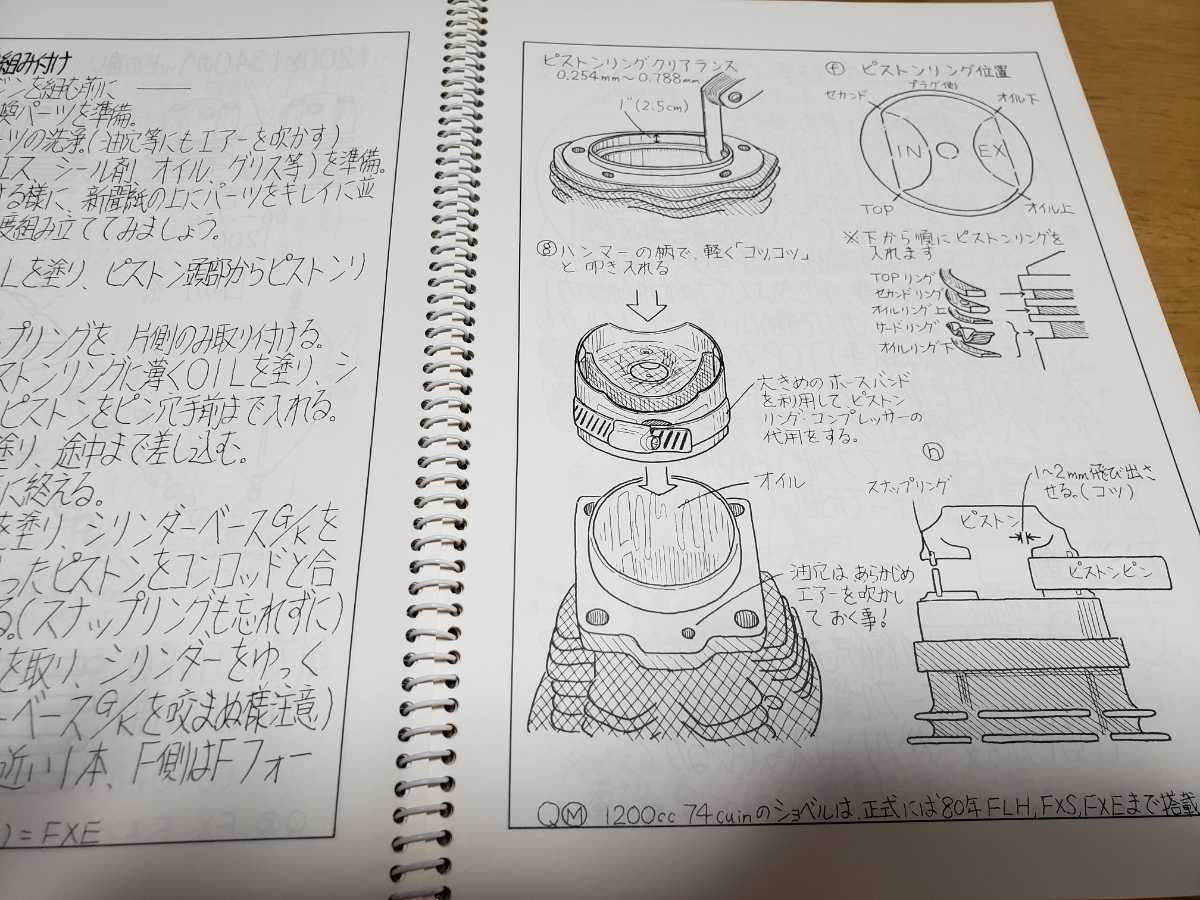 組み付け
ピンを組む前に ――
換パーツを準備。
ーツの洗滌。(油穴等にもエアーを吹かす)
エス、シール剤、オイル、グリス等)を準備。
ける様に、新聞紙の上にパーツをキレイに並
度組み立ててみましょう。
Lを塗り、ピストン頭部からピストンリ
プリングを、片側のみ取り付ける。
ストンリングに薄くOILを塗り、シ
ピストンをピン穴手前まで入れる。
塗り、途中まで差し込む。
に終える。
を塗り、シリンダーベースG/Kを
ったピストンをコンロッドと合
る。(スナップリングも忘れずに)
を取り、シリンダーをゆっく
ーベースG/Kを咬まぬ様注意)
近い1本、F側はFフォー
) = FXE
ピストンリングクリアランス
0.254mm~0.788mm
1" (2.5cm)
ⓕ ピストンリング位置
プラグ側
セカンド
オイル下
IN
EX
TOP
オイル上
※下から順にピストンリングを
入れます
TOPリング
セカンドリング
オイルリング上
サードリング
オイルリング下
⑧ ハンマーの柄で、軽く「コツコツ」
と叩き入れる
大きめのホースバンド
を利用して、ピストン
リング・コンプレッサーの
代用をする。
オイル
油穴はあらかじめ
エアーを吹かし
ておく事!
ⓗ
スナップリング
1~2mm飛び出さ
せる。(コツ)
ピストン
ピストンピン
QⓂ 1200cc 74cuinのショベルは、正式には80年FLH,FXS,FXEまで搭載